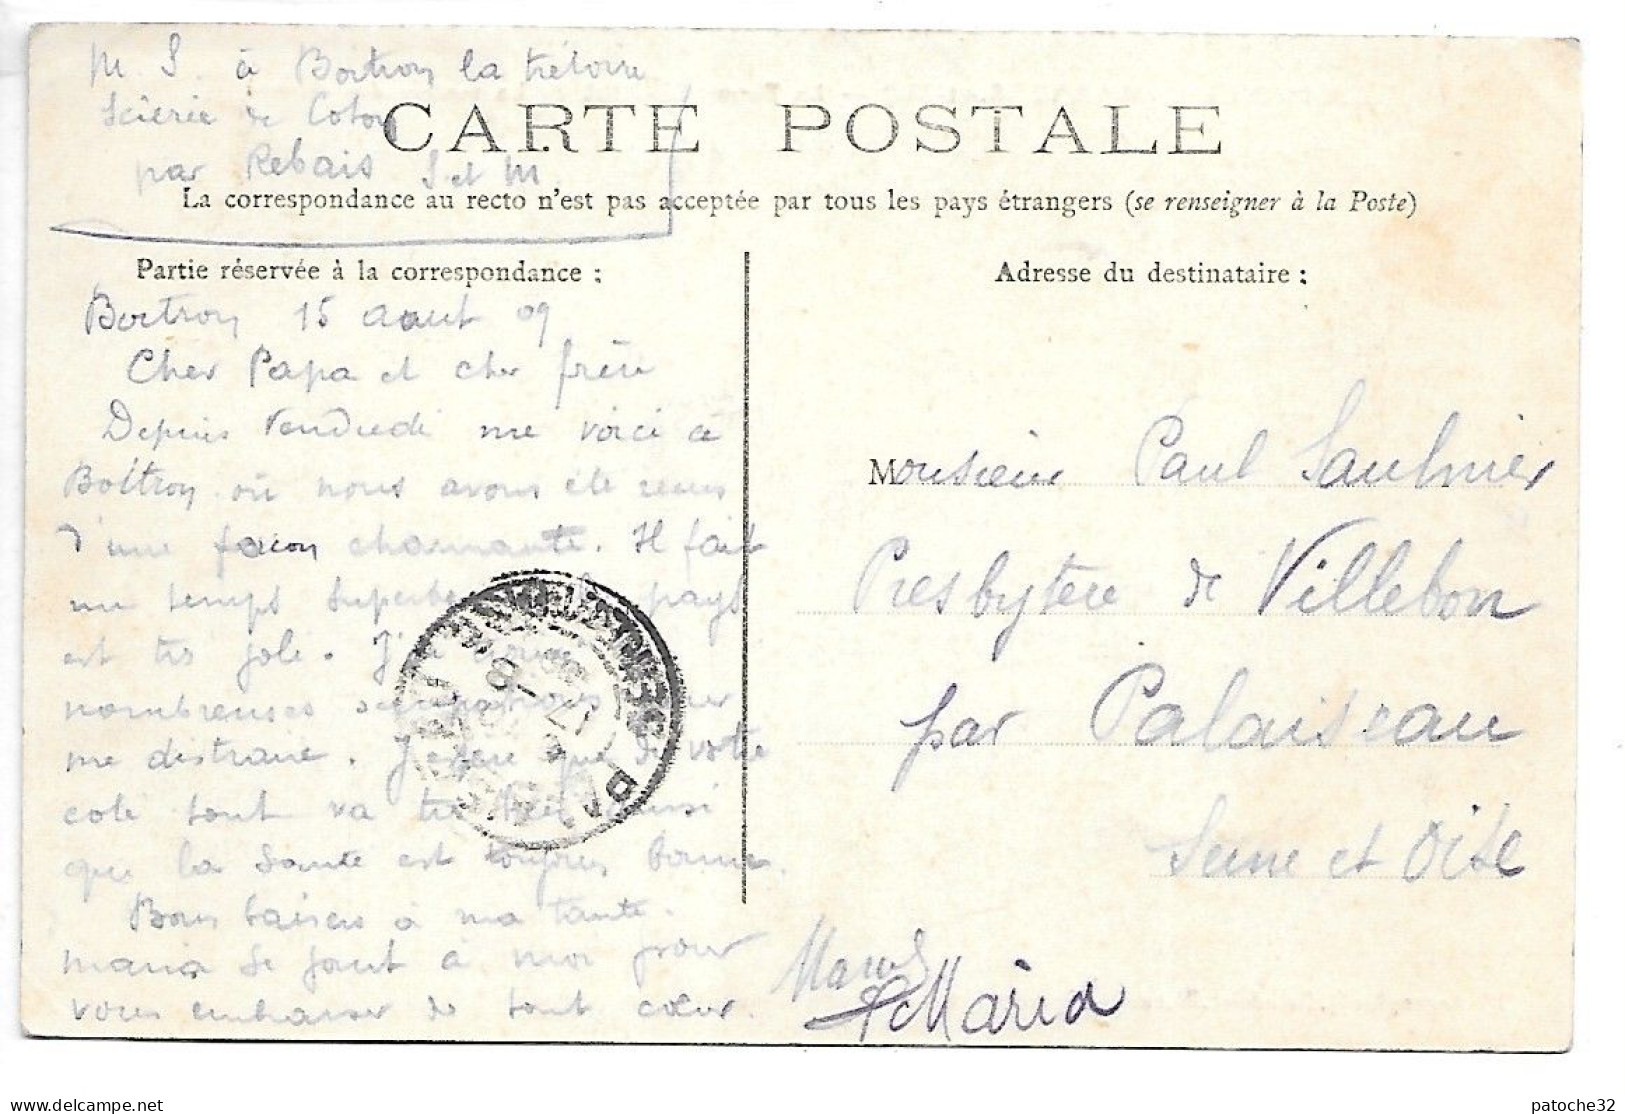 M. S. à Boitron la trétoire
Scierie de Coton
par Rebais S et M
CARTE POSTALE
La correspondance au recto n'est pas acceptée par tous les pays étrangers (se renseigner à la Poste)
Partie réservée à la correspondance :
Adresse du destinataire :
Boitron 15 aout 09
Cher Papa et cher frère
Depuis Vendredi me voici à
Boitron où nous avons été reçus
d'une facon charmante. Il fait
un temps superbe pays
est très joli. J'ai
nombreuses occupations
me distraire. J'espère que de votre
cote tout va très bien aussi
que la santé est toujours bonne.
Bons baisers à ma tante.
Maria se joint à moi pour
vous embrasser de tout cœur.
Marcel
et Maria
Monsieur Paul Saulnier
Presbytère de Villebon
par Palaiseau
Seine et Oise
delcampe.net
patoche32